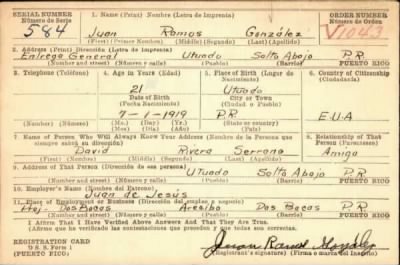 SERIAL NUMBER 1. Name (Print) Nombre (Letra de Imprenta) ORDER NUMBER
Número de Serie Número de Orden
584 Juan Ramos González V1043
(First) (Primer Nombre) (Middle) (Segundo) (Last) (Apellido)
2. Address (Print) Dirección (Letra de Imprenta)
Entrega General Utuado Salto Abajo P.R.
(Number) (Número) (Street) (Calle) (Town) (Pueblo) (Barrio) PUERTO RICO
3. Telephone (Teléfono) 4. Age in Years (Edad) 5. Place of Birth (Lugar de Nacimiento) 6. Country of Citizenship (Ciudadanía)
21 Utuado
Date of Birth (Fecha Nacimiento) City or Town (Ciudad o Pueblo)
7-1-1919 P.R. E.U.A
(Exchange) (Central) (Number) (Número) (Mo.) (Day) (Yr.)
(Mes) (Día) (Año) (State or Country) (Estado o País)
7. Name of Person Who Will Always Know Your Address (Nombre de la Persona que siempre sabrá su dirección) 8. Relationship of That Person (Parentesco)
David Rivera Serrano Amigo
(First) (Nombre) (Middle) (Segundo) (Last) (Apellido)
9. Address of That Person (Dirección de esa persona)
Utuado Salto Abajo P.R.
(Number) (Número) (Street) (Calle) (Town) (Pueblo) (Barrio) PUERTO RICO
10. Employer's Name (Nombre del Patrono)
Juan de Jesús
11. Place of Employment or Business (Dirección del empleo o negocio)
Dos Bocas Arecibo Dos Bocas P.R.
(Number) (Número) (Street) (Calle) (Town) (Pueblo) (Barrio) PUERTO RICO
I Affirm That I Have Verified Above Answers and That They Are True.
(Afirmo que he verificado las contestaciones que preceden y que todas son correctas.)
REGISTRATION CARD
D S S. Form 1
(TARJETA DE INSCRIPCION)
Juan Ramos González
(Registrant's signature) (Firma o marca del Inscrito)